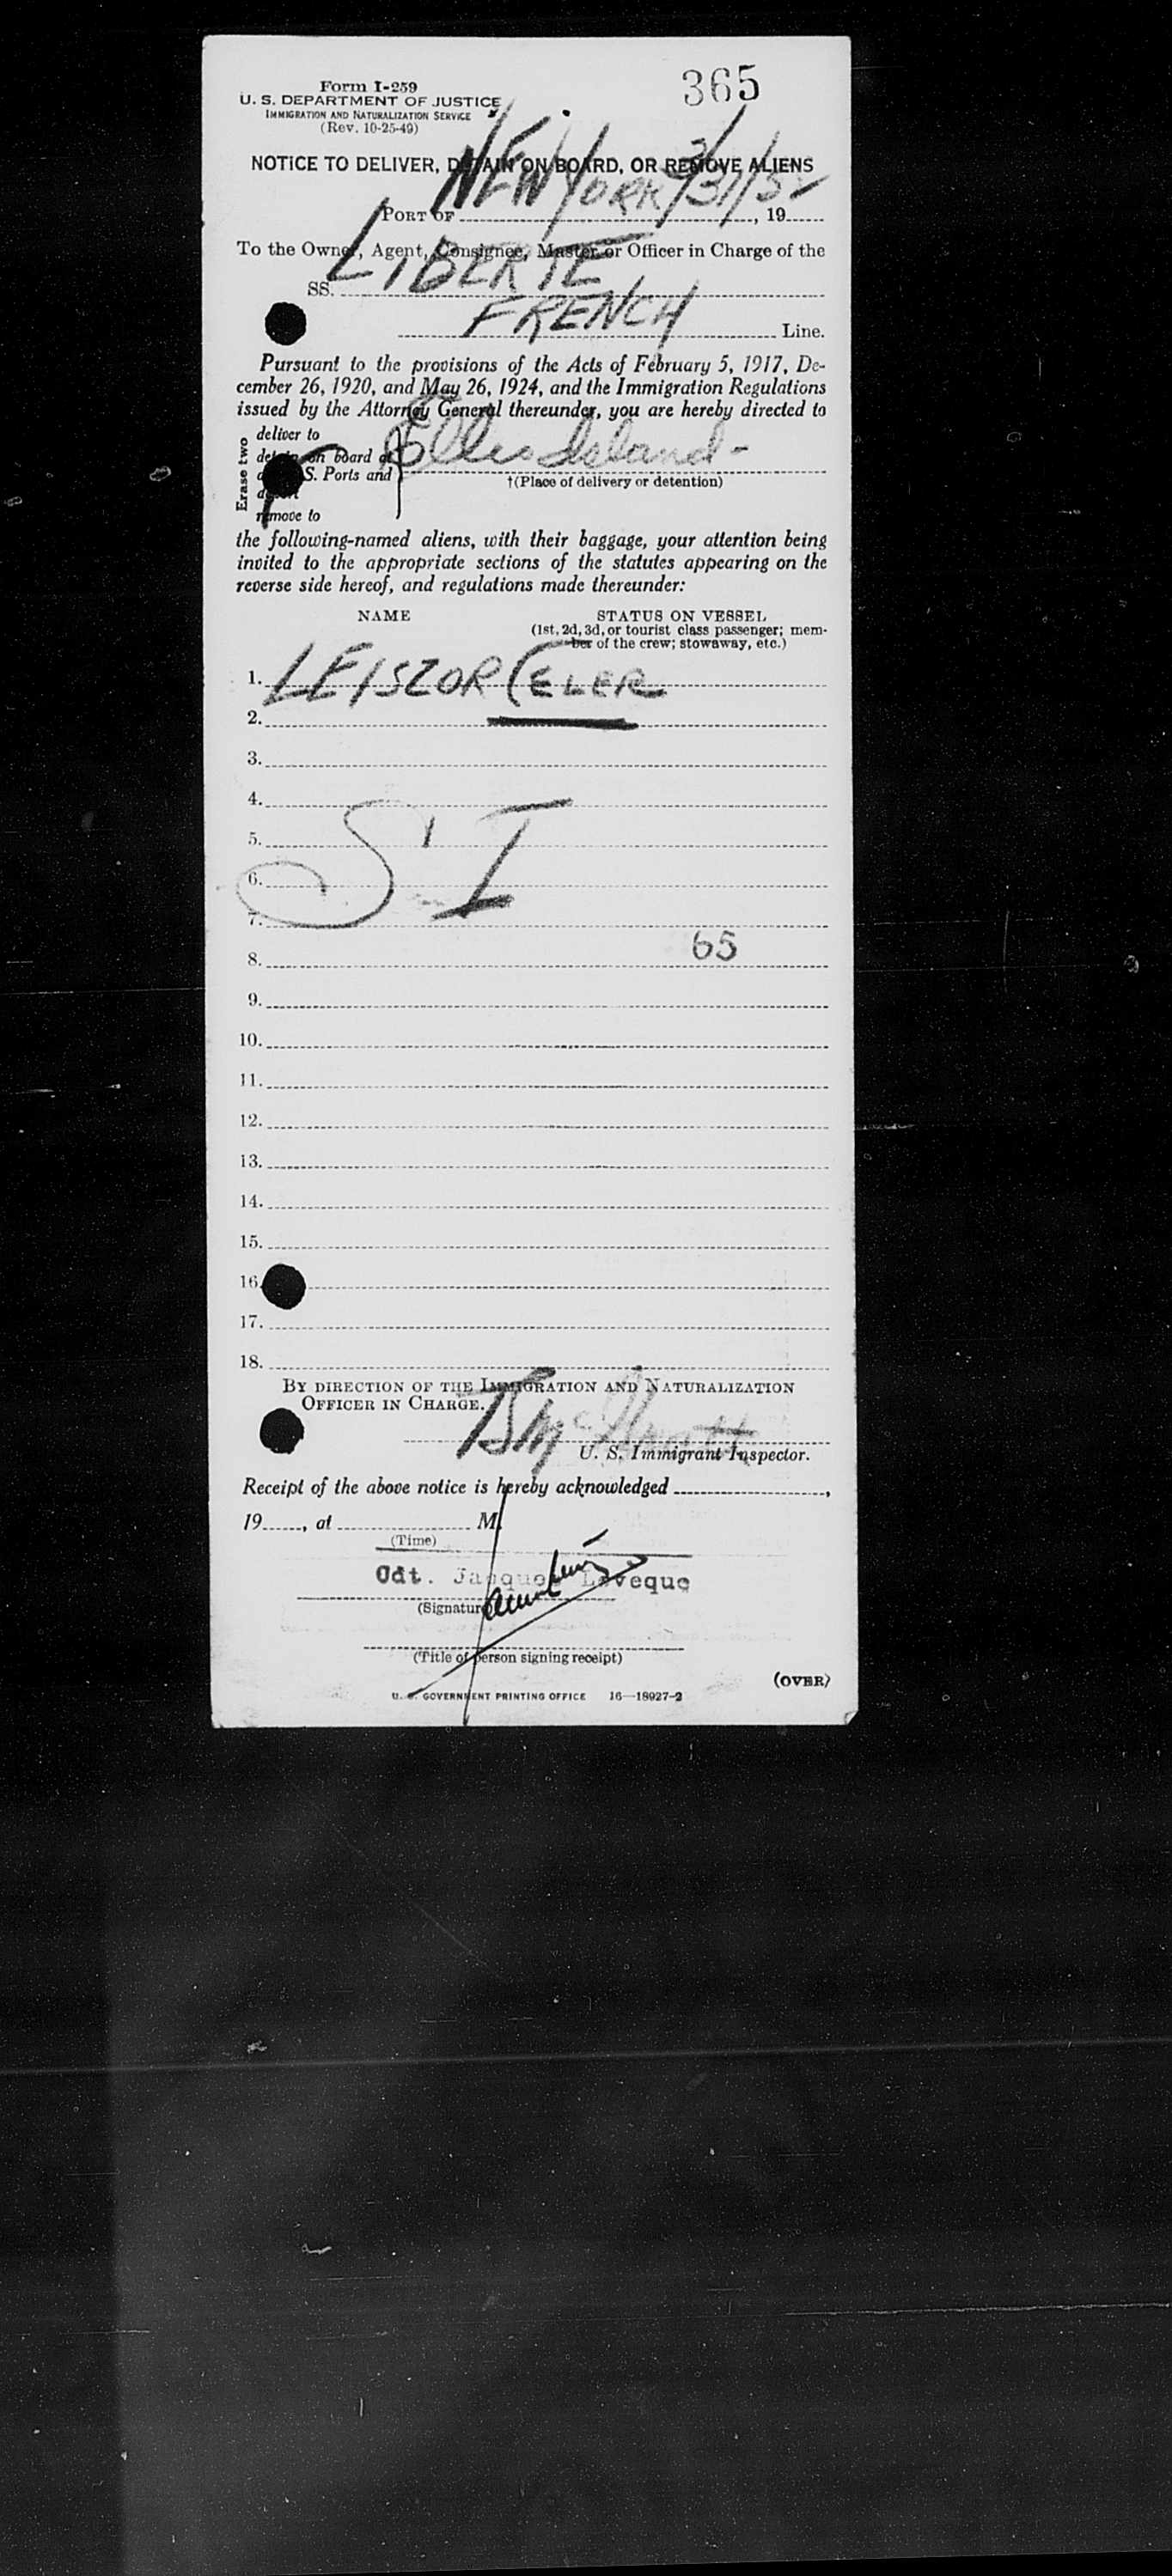 365
Form I-259
U. S. DEPARTMENT OF JUSTICE
IMMIGRATION AND NATURALIZATION SERVICE
(Rev. 10-25-49)
NOTICE TO DELIVER, DETAIN ON BOARD, OR REMOVE ALIENS
PORT OF NEW YORK 3/31/52, 19
To the Owner, Agent, Consignee, Master or Officer in Charge of the
SS. LIBERTE
FRENCH Line.
Pursuant to the provisions of the Acts of February 5, 1917, De-
cember 26, 1920, and May 26, 1924, and the Immigration Regulations
issued by the Attorney General thereunder, you are hereby directed to
Erase two
deliver to
detain on board at
S. Ports and
Ellis Island-
†(Place of delivery or detention)
remove to
the following-named aliens, with their baggage, your attention being
invited to the appropriate sections of the statutes appearing on the
reverse side hereof, and regulations made thereunder:
NAME STATUS ON VESSEL
(1st, 2d, 3d, or tourist class passenger; mem-
ber of the crew; stowaway, etc.)
1. LEISZOR CELER
2.
3.
4.
5.
S I
6.
7.
65
8.
9.
10.
11.
12.
13.
14.
15.
16.
17.
18.
BY DIRECTION OF THE IMMIGRATION AND NATURALIZATION
OFFICER IN CHARGE.
U. S. Immigrant Inspector.
Receipt of the above notice is hereby acknowledged ,
19 , at M.
(Time)
Cdt. Jacques Leveque
(Signature)
(Title of person signing receipt)
(OVER)
U. S. GOVERNMENT PRINTING OFFICE 16—18927-2